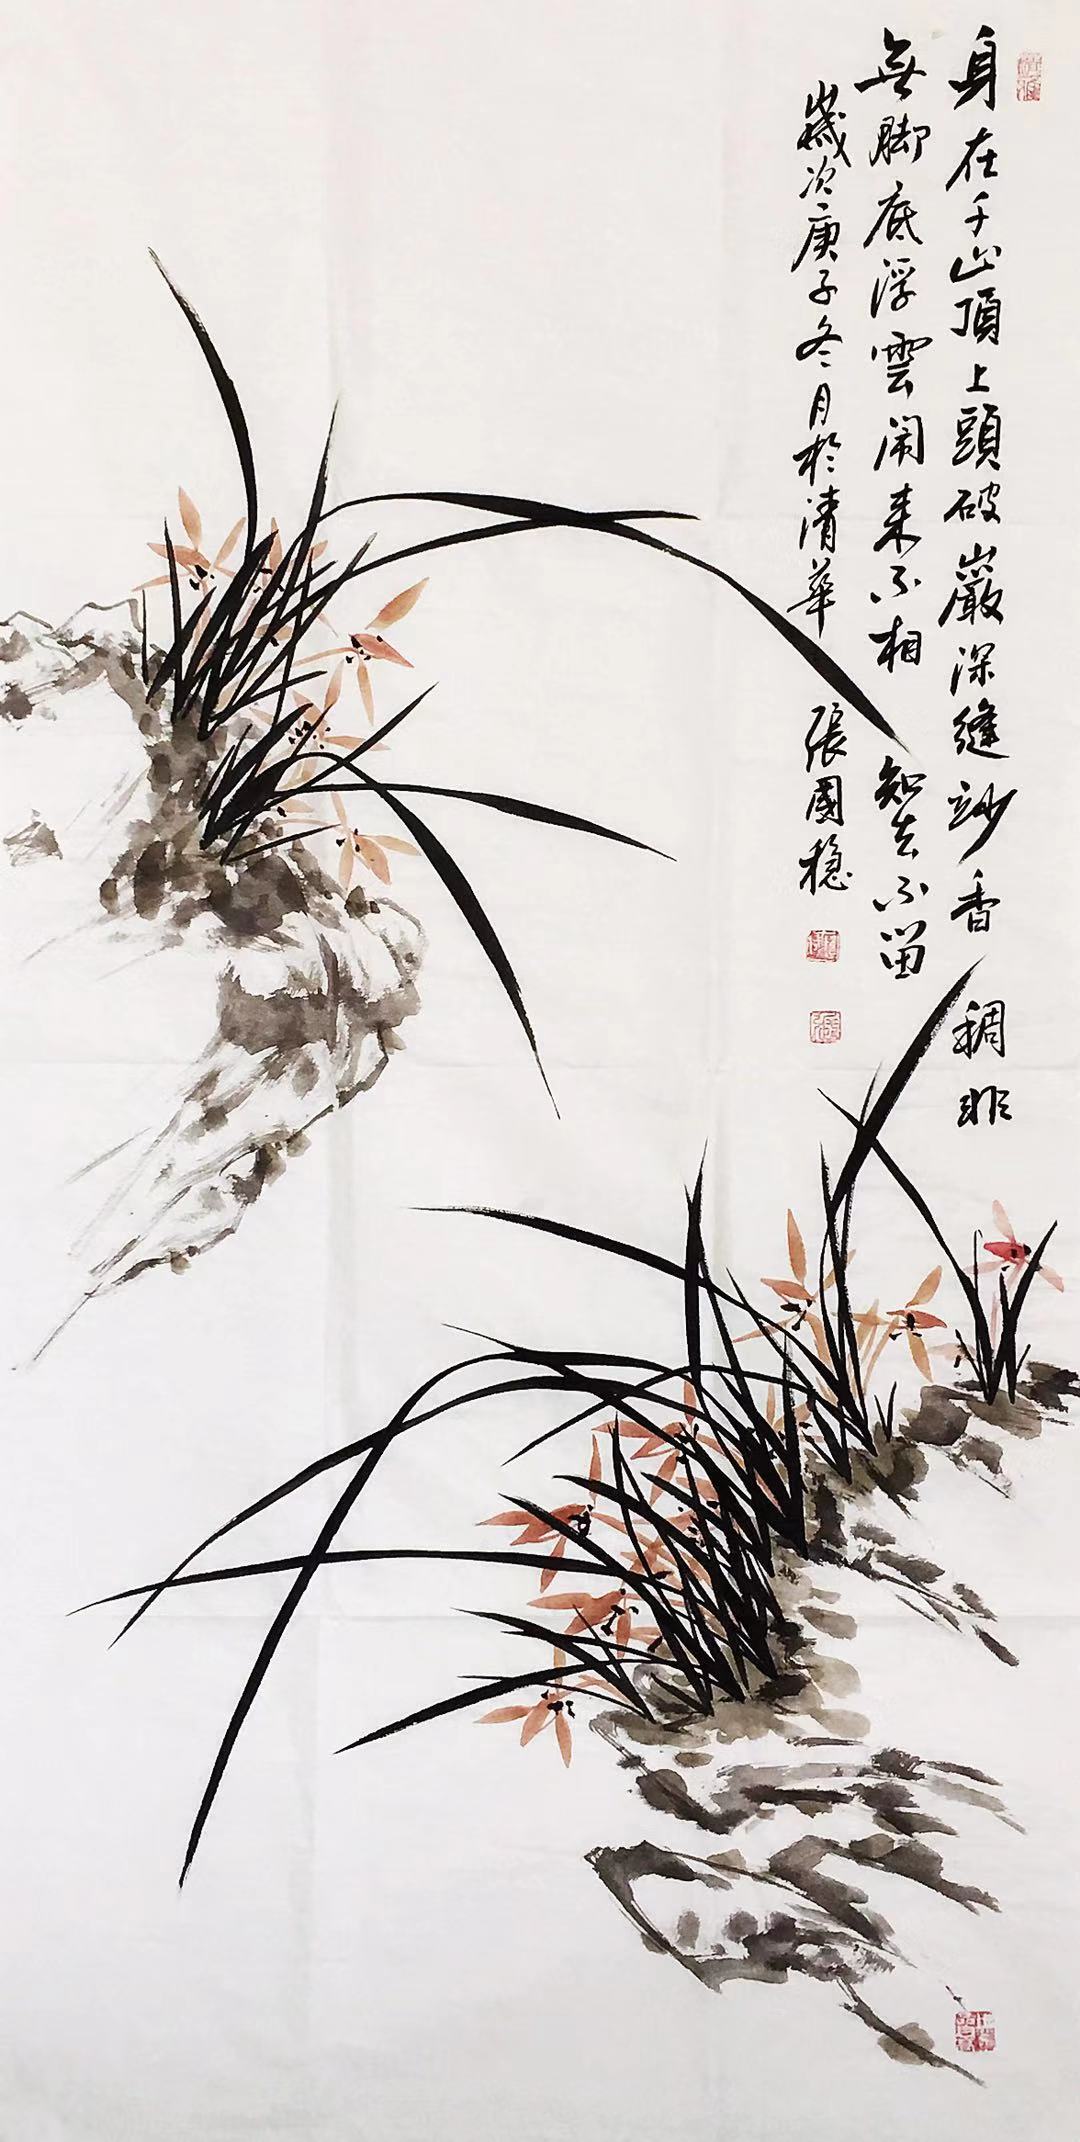 身在千山頂上頭破巖深縫妙香稠非
無脚底浮雲闹来不相知去不留
歲次庚子冬月於清華 張國穩